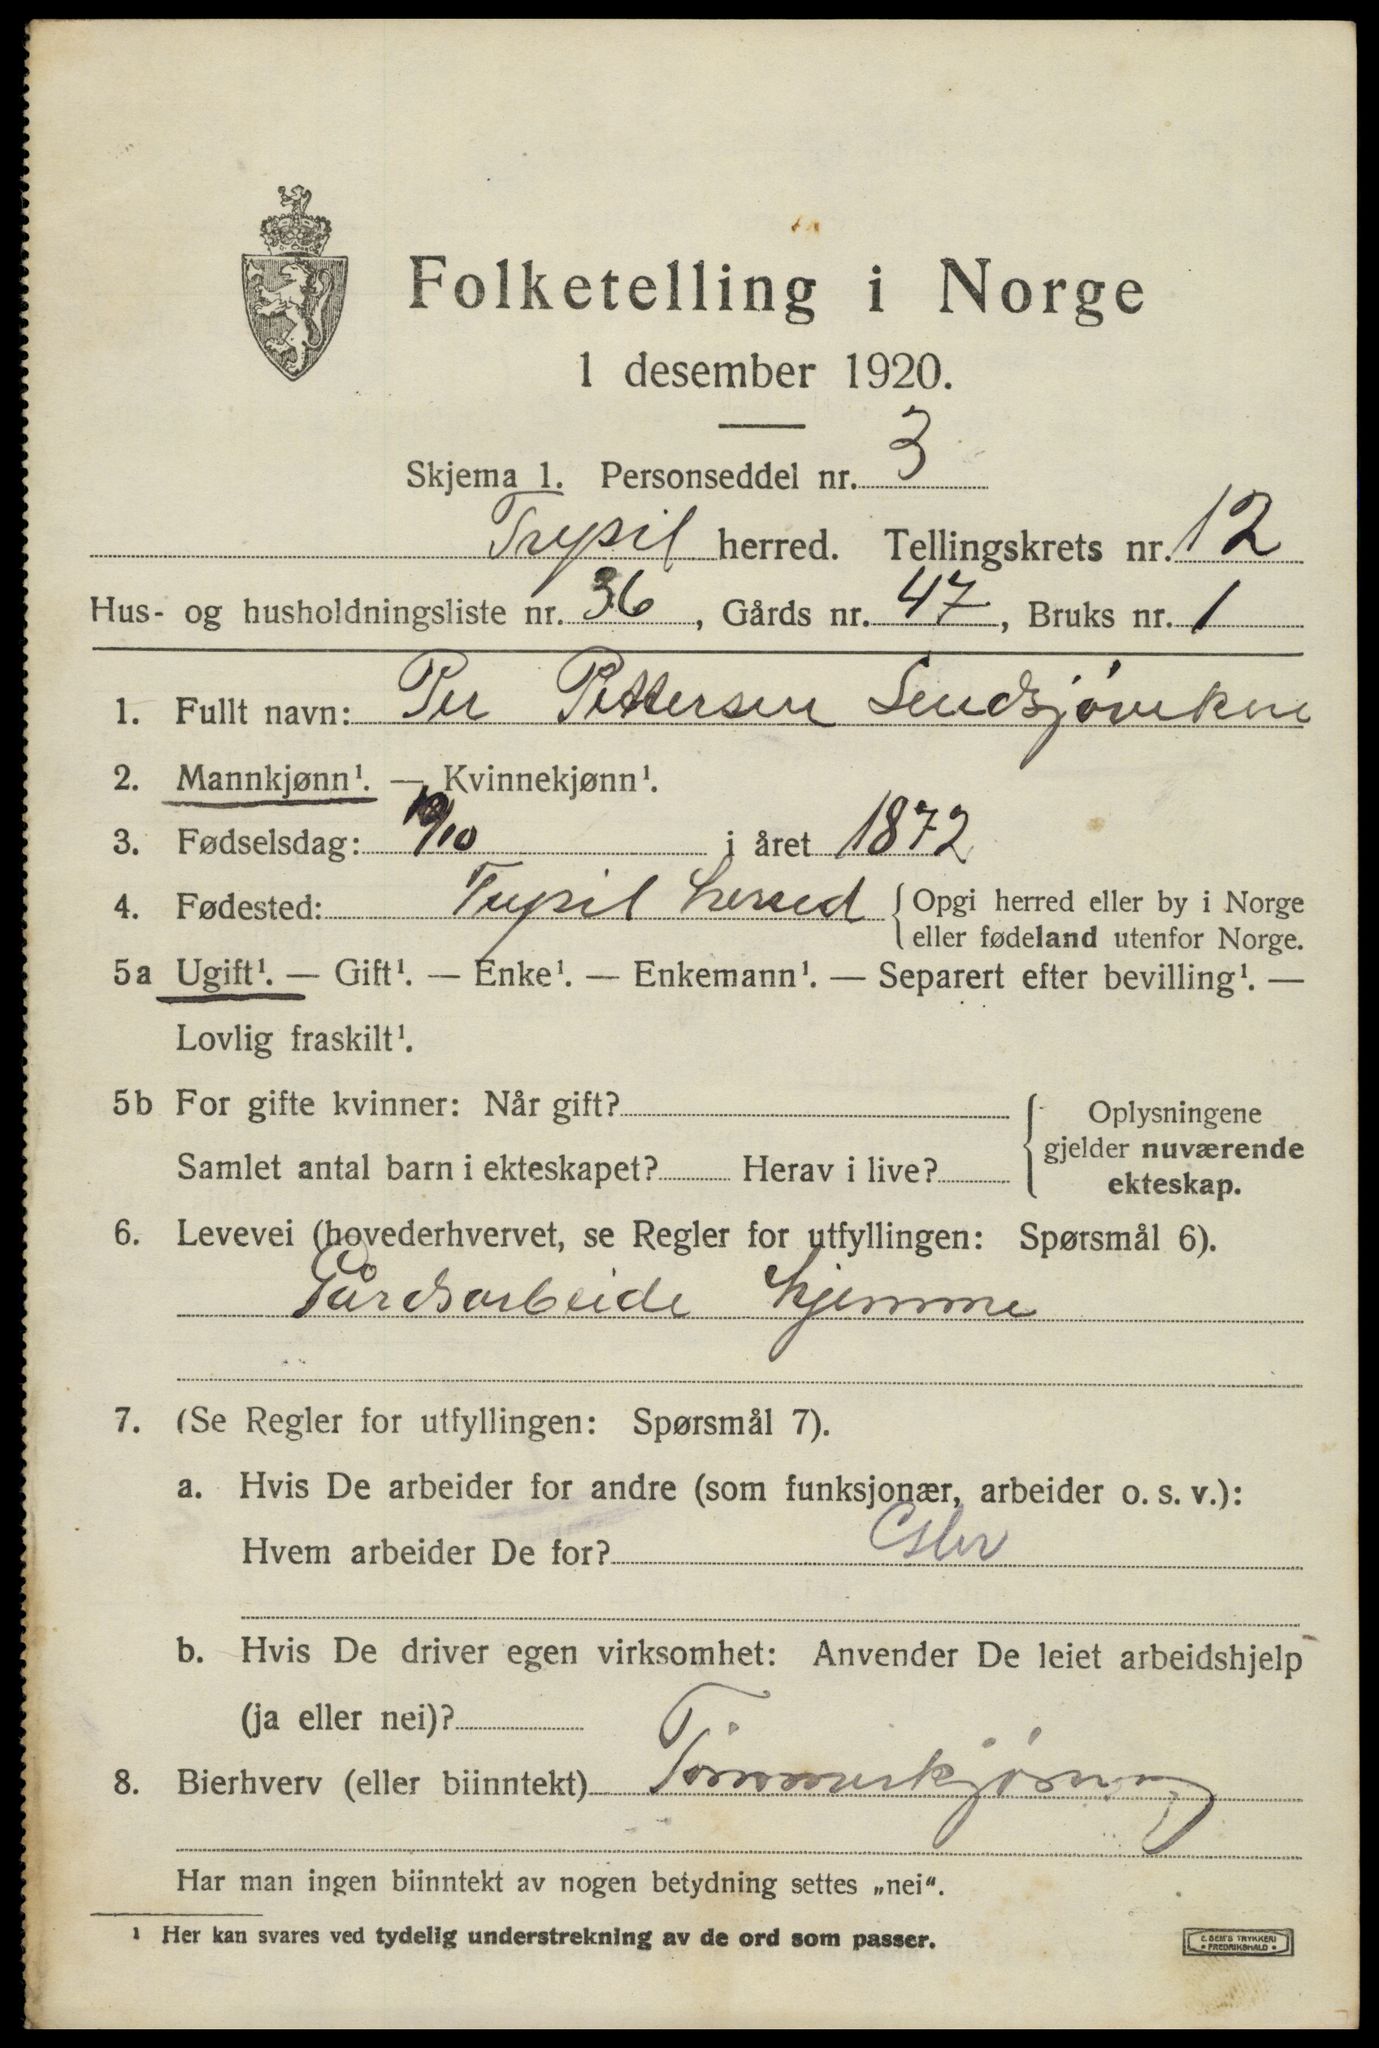 Folketelling i Norge
1 desember 1920.
Skjema 1. Personseddel nr. 3
Trysil herred. Tellingskrets nr. 12
Hus- og husholdningsliste nr. 36, Gårds nr. 47, Bruks nr. 1
1. Fullt navn: Per Pettersen
2. Mannkjønn¹. — Kvinnekjønn¹.
3. Fødselsdag: i året 1872
4. Fødested: Trysil herred { Opgi herred eller by i Norge
eller fødeland utenfor Norge.
5a Ugift¹. — Gift¹. — Enke¹. — Enkemann¹. — Separert efter bevilling¹. —
Lovlig fraskilt¹.
5b For gifte kvinner: Når gift?
Samlet antal barn i ekteskapet? Herav i live?
{ Oplysningene
gjelder nuværende
ekteskap.
6. Levevei (hovederhvervet, se Regler for utfyllingen: Spørsmål 6).
Gårdsarbeide hjemme
7. (Se Regler for utfyllingen: Spørsmål 7).
a. Hvis De arbeider for andre (som funksjonær, arbeider o. s. v.):
Hvem arbeider De for?
b. Hvis De driver egen virksomhet: Anvender De leiet arbeidshjelp
(ja eller nei)?
8. Bierhverv (eller biinntekt) Tømmerkjøring
Har man ingen biinntekt av nogen betydning settes „nei“.
¹ Her kan svares ved tydelig understrekning av de ord som passer.
E. SEM'S TRYKKERI
* FREDRIKSHALD *